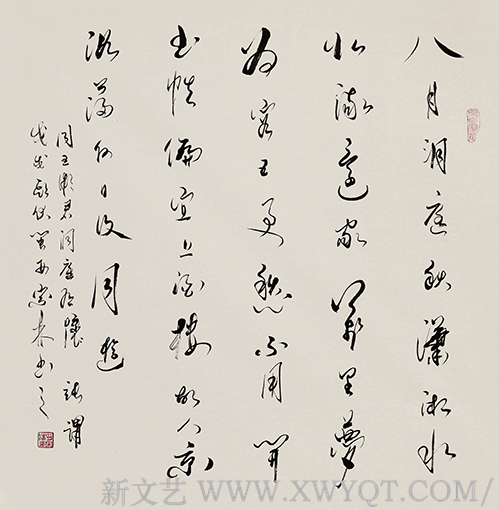 八月洞庭秋瀟湘水
北流還家萬里夢
為客五更愁不用開
書帙偏宜上酒樓故人京
洛滿何日復同遊
同王徵君洞庭有懷 張謂
戊戌 書之
新文艺 WWW.XWYQT.COM/